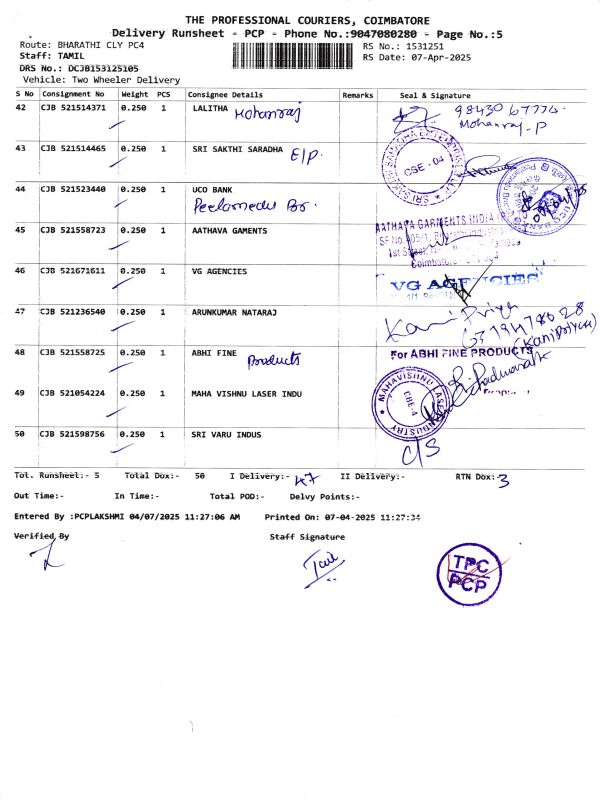 THE PROFESSIONAL COURIERS, COIMBATORE
Delivery Runsheet - PCP - Phone No.:9047080280 - Page No.:5
Route: BHARATHI CLY PC4 RS No.: 1531251
Staff: TAMIL RS Date: 07-Apr-2025
DRS No.: DCJB153125105
Vehicle: Two Wheeler Delivery
S No Consignment No Weight PCS Consignee Details Remarks Seal & Signature
42 CJB 521514371 0.250 1 LALITHA Mohanraj 98430 67774.
Mohanraj-P
43 CJB 521514465 0.250 1 SRI SAKTHI SARADHA E/P. CSE - 04
44 CJB 521523440 0.250 1 UCO BANK
Peelamedu Br.
45 CJB 521558723 0.250 1 AATHAVA GAMENTS AATHAVA GARMENTS INDIA
1st Street,
Coimbatore
46 CJB 521671611 0.250 1 VG AGENCIES VG AGENCIES
47 CJB 521236540 0.250 1 ARUNKUMAR NATARAJ Kani Priya
(KaniPriya)
48 CJB 521558725 0.250 1 ABHI FINE Products For ABHI FINE PRODUCTS
49 CJB 521054224 0.250 1 MAHA VISHNU LASER INDU MAHAVISHNU LASER INDUSTRY CBE-4
50 CJB 521598756 0.250 1 SRI VARU INDUS C/S
Tot. Runsheet:- 5 Total Dox:- 50 I Delivery:- 47 II Delivery:- RTN Dox:- 3
Out Time:- In Time:- Total POD:- Delvy Points:-
Entered By :PCPLAKSHMI 04/07/2025 11:27:06 AM Printed On: 07-04-2025 11:27:34
Verified By Staff Signature
TPC
PCP